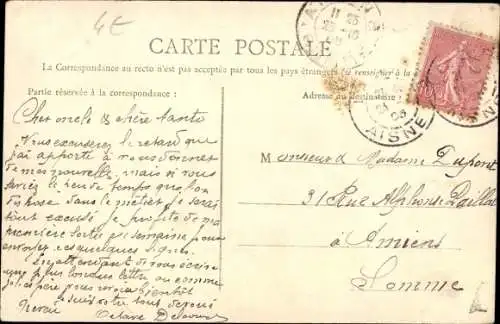 4E
CARTE POSTALE
La Correspondance au recto n'est pas acceptée par tous les pays étrangers (se renseigner à la
Partie réservée à la correspondance :
Adresse du destinataire :
AISNE
Cher oncle & chère tante
Vous excuserez le retard que
j'ai apporté à vous donner
de mes nouvelles mais si vous
saviez le peu de temps que l'on
dispose dans le métier je serai
tout excusé je profite de ma
première sortie par semaine pour
envoyer ces quelques lignes.
En attendant de vous écrire
une plus longue lettre ou comme
je l'espère pour vous voir bientôt
Je suis votre tout dévoué
neveu Octave
Monsieur & Madame Dupont
31 Rue Alphonse Paillat
à Amiens
Somme